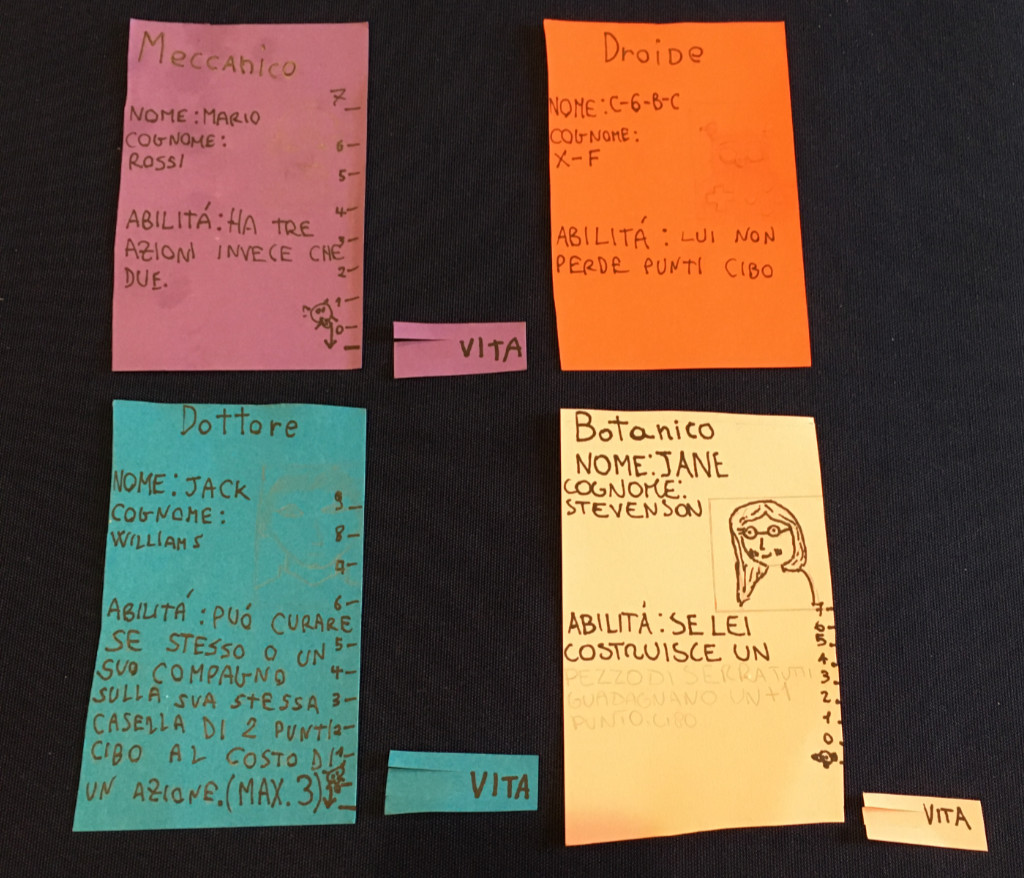 Meccanico
NOME:MARIO
COGNOME:
ROSSI
ABILITÁ:HA TRE
AZIONI INVECE CHE
DUE.
7
6
5
4
3
2
1
0
VITA
Droide
NOME:C-6-B-C
COGNOME:
X-F
ABILITÁ: LUI NON
PERDE PUNTI CIBO
Dottore
NOME:JACK
COGNOME:
WILLIAMS
ABILITÁ:PUÓ CURARE
SE STESSO O UN
SUO COMPAGNO
SULLA SUA STESSA
CASELLA DI 2 PUNTI
CIBO AL COSTO DI
UN AZIONE.(MAX.3)
8
6
5
4
3
2
1
VITA
Botanico
NOME:JANE
COGNOME:
STEVENSON
ABILITÁ:SE LEI
COSTRUISCE UN
PEZZO DI SERRA TUTTI
GUADAGNANO UN +1
PUNTO CIBO
7
6
5
4
3
2
1
0
VITA